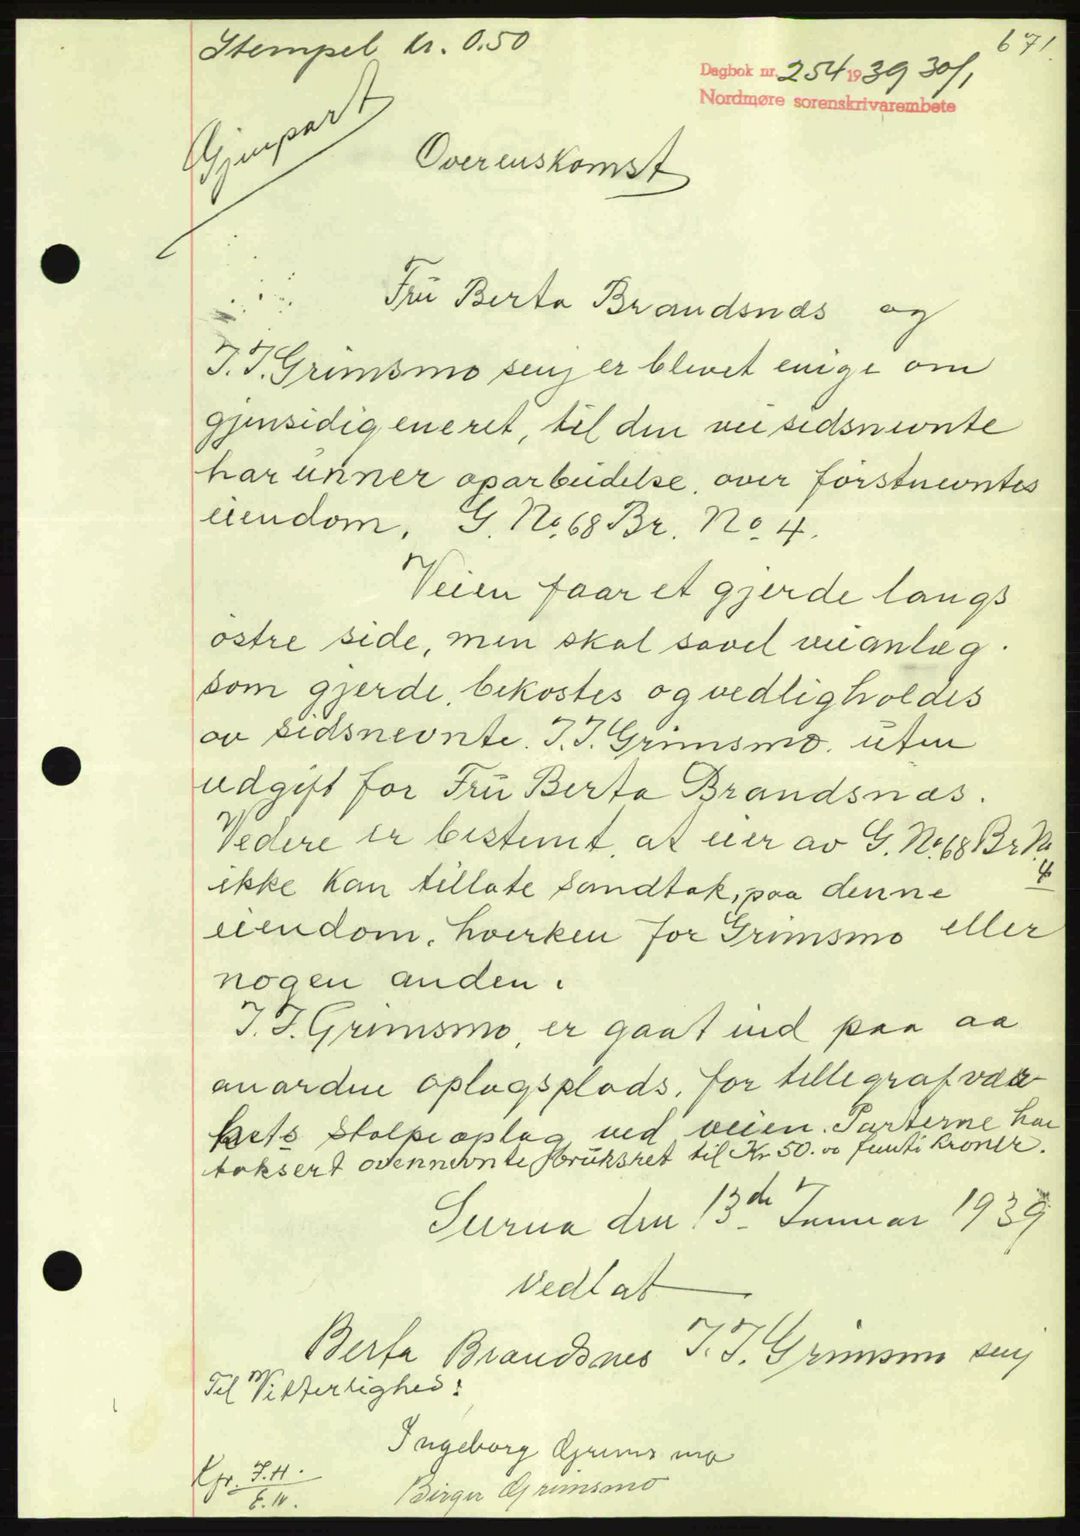 Stempel kr. 0.50
671
Dagbok nr. 254 1939 30/1
Nordmøre sorenskrivarembete
Gjenpart
Overenskomst
Frü Berta Brandsnæs og
I. I. Grimsmo senj er blevet enige om
gjensidig eneret, til den vei sidsnevnte
har ünner oparbeidelse. over førstnevntes
eiendom. G. No. 68 Br. No. 4.
Veien faar et gjerde langs
østre side, men skal savel veianlæg.
som gjerde, bekostes og vedligholdes
av sidsnevnte. I. I. Grimsmo. üten
udgift for Frü Berta Brandsnæs.
Vedere er bestemt, at eier av G. No. 68 Br No
4
ikke kan tillate Sandtak, paa denne
eiendom, hverken for Grimsmo eller
nogen anden.
I. I. Grimsmo, er gaat ind paa aa
anordne oplagsplads, for tellegrafvær-
kets stolpeoplag ved veien. Parterne har
taksert ovennevnte brüksret til Kr 50.00 femti kroner.
Surna den 13de Januar 1939
Vedlat
Berta Brandsnes I. I. Grimsmo senj
Til Vitterlighed:
Ingeborg Grimsmo
Birger Grimsmo
Kfr. J.H.
E.W.